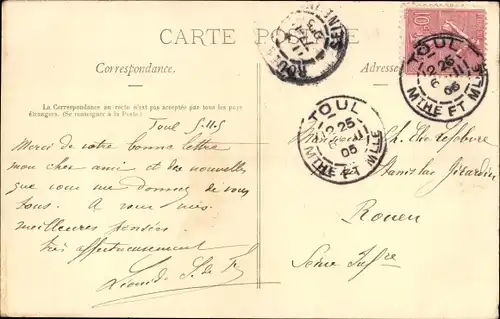 CARTE POSTALE
Correspondance.
Adresse
La Correspondance au recto n'est pas acceptée par tous les pays
étrangers. (Se renseigner à la Poste)
Toul 5-11-5
Merci de votre bonne lettre
mon cher ami et des nouvelles
que vous me donnez de vous
tous. A vous mes
meilleures pensées
très affectueusement
TOUL
12 25
6 -11
05
MTHE ET MLLE
TOUL
12 25
6 -11
05
MTHE ET MLLE
10
Monsieur Lefebvre
Stanislas Girardin
Rouen
Seine Infre